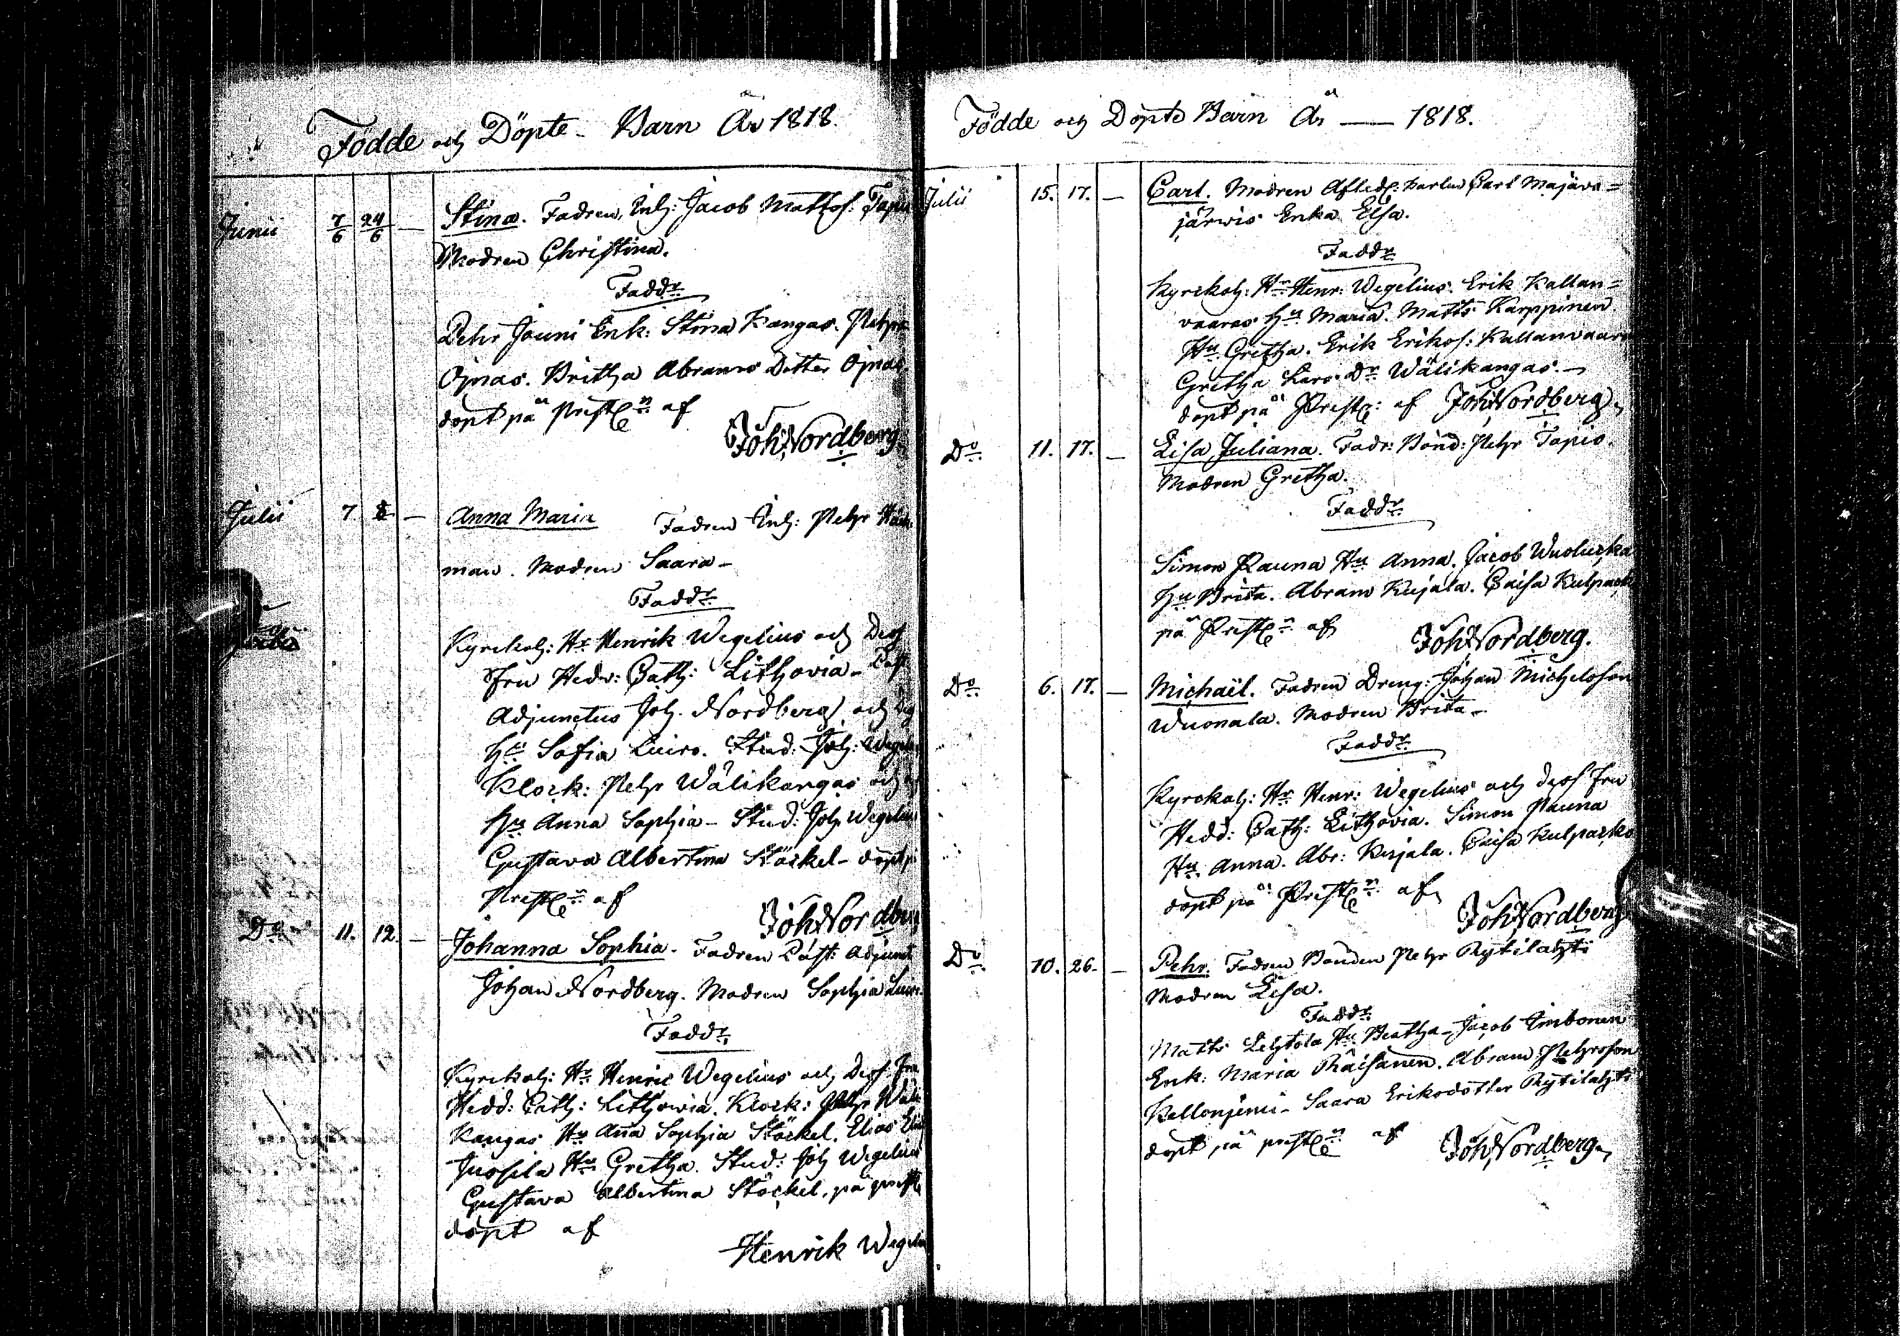 Födde och Döpte Barn År 1818.
Junii 7/6 24/6 — Stina. Fadren, Inh: Jacob Mattss: Tapio
Modren Christina.
Faddr:
Pehr Jouni Enk: Stina Kangas. Pehr
Ojnas. Britha Abrams Dotter Ojnas
döpt på Prestg:n af
Joh. Nordberg.
Julii 7 8 — Anna Maria Fadren Inh: Pehr
man. Modren Saara —
Faddr:
Kyrkoh: Hr Henrik Wegelius och Dess
Fru Hedv: Cath: Lithovia — Past:
Adjunctus Joh. Nordberg och Dess
Hu Sofia Luiro. Stud: Joh: Wegelius
Klock: Pehr Wälikangas och
Hu Anna Sophia — Stud: Joh Wegelius
Gustava Albertina Stöckel — döpt på
Prestg:n af
Joh. Nordberg
Do 11. 12. — Johanna Sophia. Fadren Past: Adjunct
Johan Nordberg. Modren Sophia Luiro.
Faddr:
Kyrkoh: Hr Henric Wegelius och Dess Fru
Hedd: Cath: Lithowia. Klock: Pehr Wäli
Kangas Hu Anna Sophia Stöckel. Elias
Juosila Hu Gretha. Stud: Joh Wegelius
Gustava Albertina Stöckel, på prestg
döpt af
Henrik Wegelius
Födde och Döpte Barn År — 1818.
Julii 15. 17. — Carl. Modren Afledg: karlen Carl Majava=
järwis Enka Elsa.
Faddr:
Kyrkoh: Hr Henr: Wegelius. Erik Kallan=
vaaras Hu Maria. Matts Karppinen
Hu Gretha. Erik Erikss: Kallanvaara
Gretha Lars Dr Wälikangas. —
döpt på Prestg: af Joh. Nordberg.
Do 11. 17. — Lisa Juliana. Fadr: Bond: Pehr Tapio.
Modren Gretha.
Faddr:
Simon Pauna Hu Anna. Jacob Wuolucka
Hu Brita. Abram Kujala. Caisa Kulpacko
på Prestg:n af Joh. Nordberg.
Do 6. 17. — Michaël. Fadren Dreng: Johan Michelsson
Wuonala. Modren Brita —
Faddr:
Kyrkoh: Hr Henr: Wegelius och dess Fru
Hedd: Cath: Lithovia. Simon Pauna
Hu Anna. Abr: Kujala. Caisa Kulpacko
döpt på Prestg:n af
Joh. Nordberg
Do 10. 26. — Pehr. Fadren Bonden Pehr Rytilahti
Modren Lisa.
Faddr:
Matts Lehtola Hu Beatha — Jacob Imbonen
Enk: Maria Räisänen. Abram Pehrsson
Kellonjemi — Saara Eriksdotter Rytilahti
döpt på prestg:n af Joh. Nordberg.